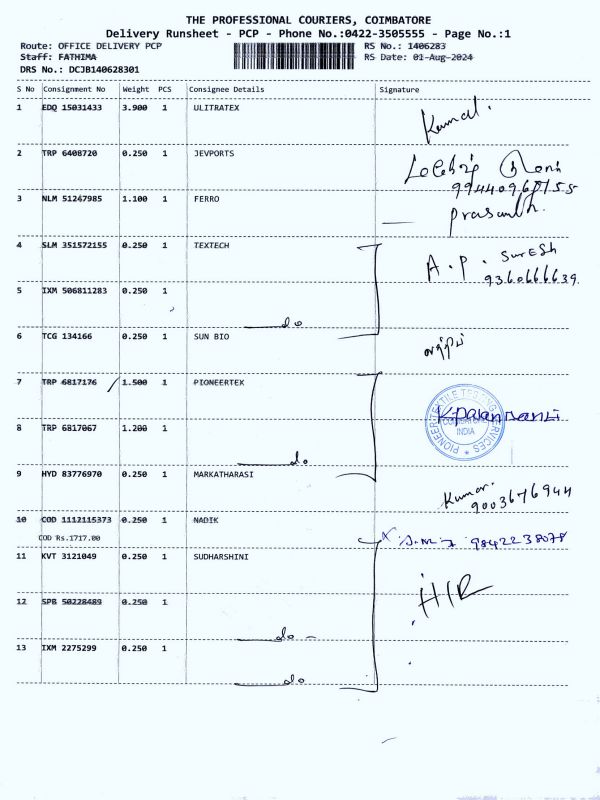 THE PROFESSIONAL COURIERS, COIMBATORE
Delivery Runsheet - PCP - Phone No.:0422-3505555 - Page No.:1
Route: OFFICE DELIVERY PCP RS No.: 1406283
Staff: FATHIMA RS Date: 01-Aug-2024
DRS No.: DCJB140628301
S No Consignment No Weight PCS Consignee Details Signature
1 EDQ 15031433 3.900 1 ULITRATEX Kumar.
2 TRP 6408720 0.250 1 JEVPORTS
3 NLM 51247985 1.100 1 FERRO Prasanth.
4 SLM 351572155 0.250 1 TEXTECH A.P. SURESH
9360666639.
5 IXM 506811283 0.250 1
do
6 TCG 134166 0.250 1 SUN BIO
7 TRP 6817176 1.500 1 PIONEERTEK
PIONEER TEXTILE TESTING SERVICES
COIMBATORE
INDIA
8 TRP 6817067 1.200 1
do
9 HYD 83776970 0.250 1 MARKATHARASI Kumar.
9003676944
10 COD 1112115373 0.250 1 NADIK
COD Rs.1717.00 9842238078
11 KVT 3121049 0.250 1 SUDHARSHINI
12 SPB 50228489 0.250 1
do
13 IXM 2275299 0.250 1
do